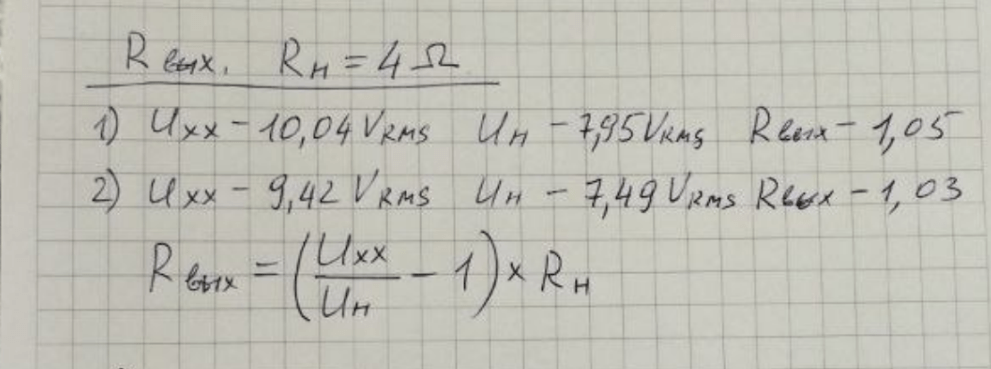 Rвых. Rн = 4 Ω
1) Uxx - 10,04 VRMS Uн - 7,95 VRMS Rвых - 1,05
2) Uxx - 9,42 VRMS Uн - 7,49 VRMS Rвых - 1,03
Rвых = (Uxx/Uн - 1) × Rн